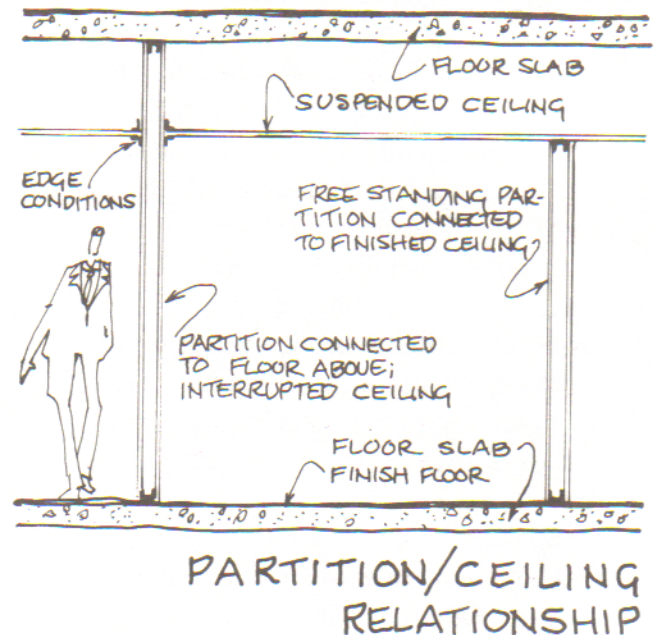 FLOOR SLAB
SUSPENDED CEILING
EDGE
CONDITIONS
FREE STANDING PAR-
TITION CONNECTED
TO FINISHED CEILING
PARTITION CONNECTED
TO FLOOR ABOVE;
INTERRUPTED CEILING
FLOOR SLAB
FINISH FLOOR
PARTITION/CEILING
RELATIONSHIP